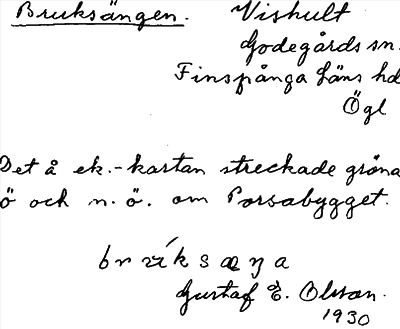 Bruksängen. Vishult
Godegårds sn.
Finspånga läns hd
Ögl
Det å ek.-kartan streckade gröna
ö och n. ö. om Porsabygget.
Gustaf E. Olsson.
1930